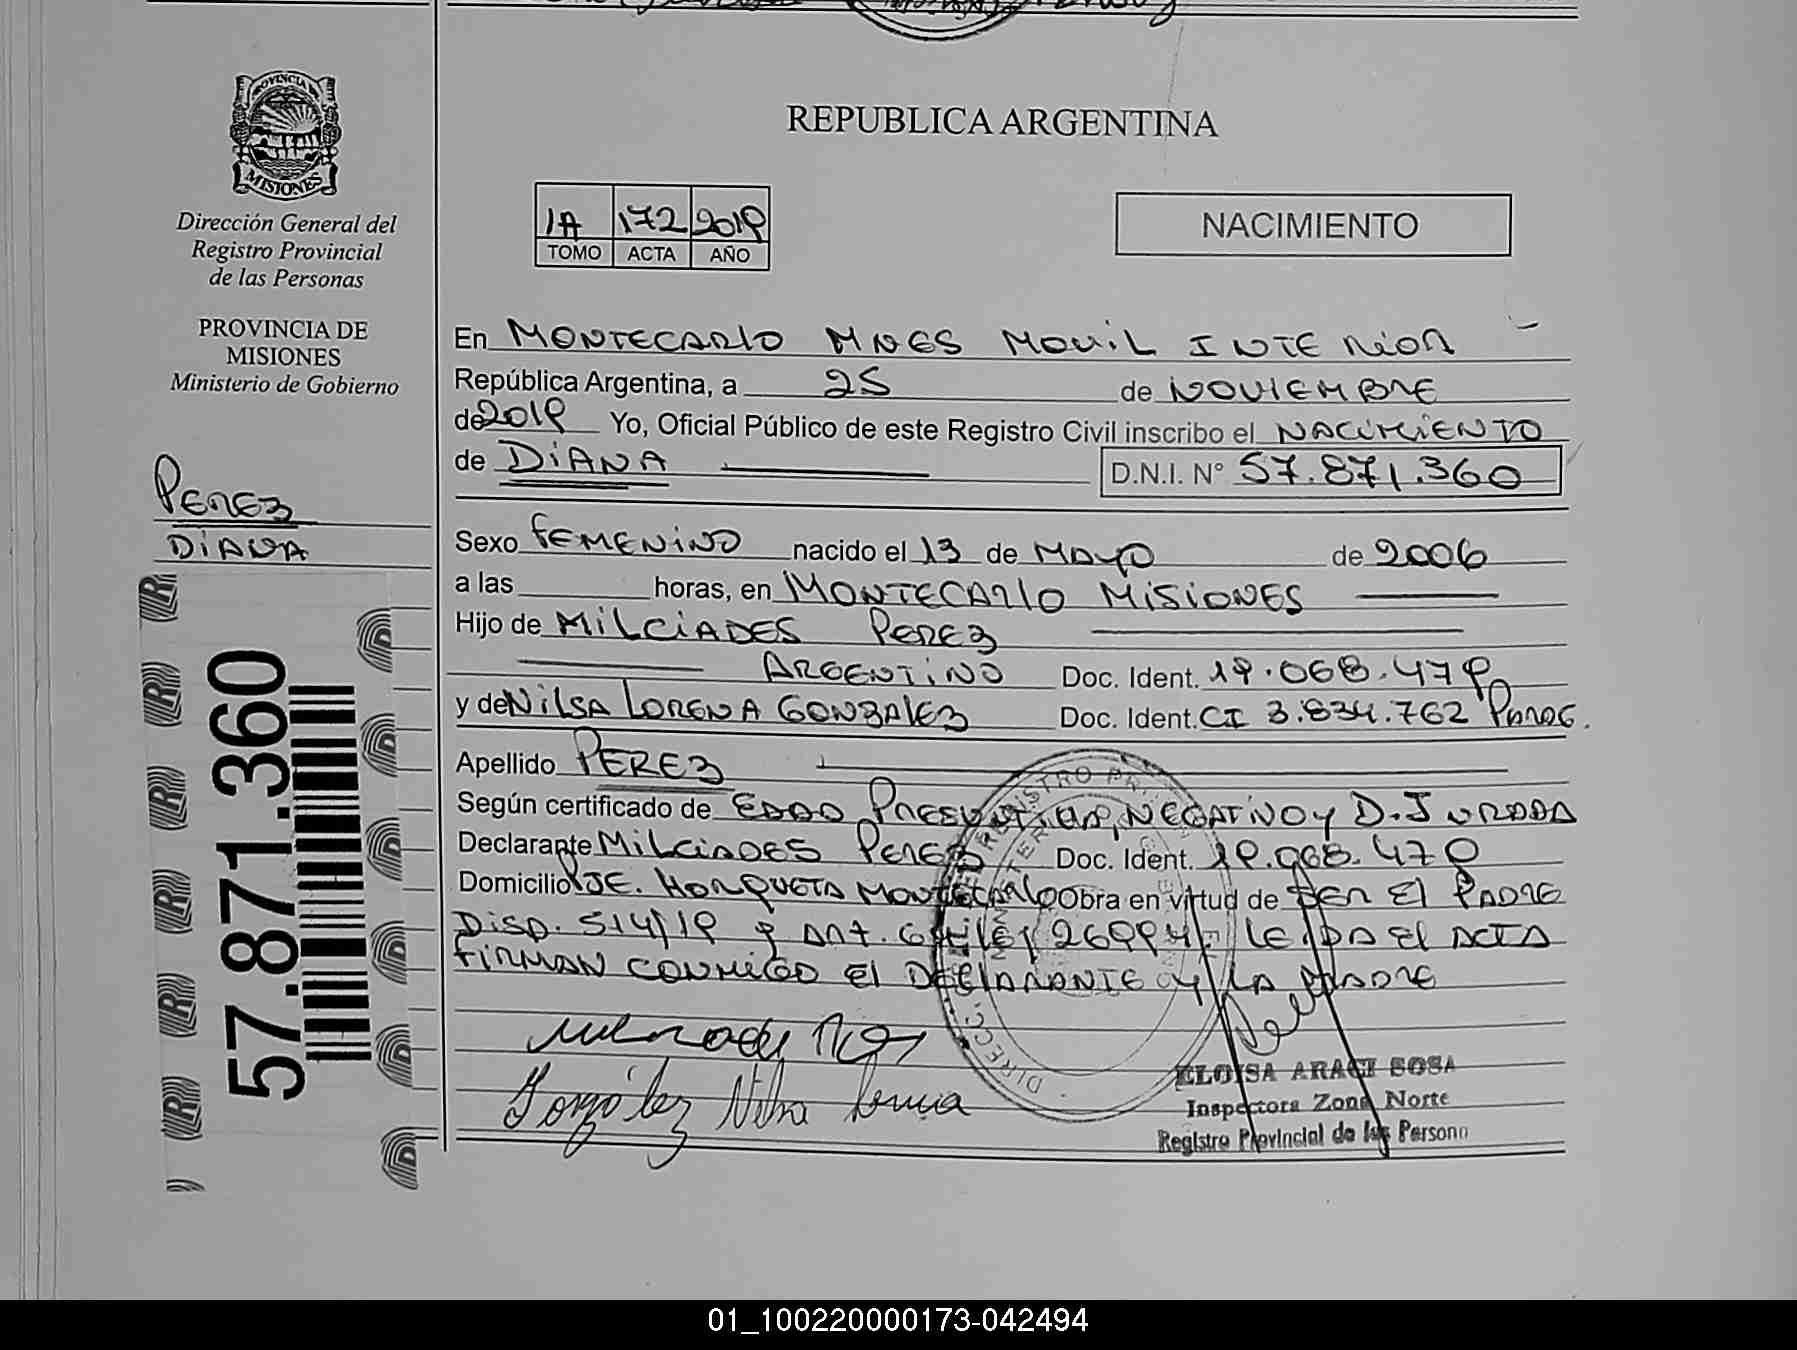 PROVINCIA DE
MISIONES
Dirección General del
Registro Provincial
de las Personas
PROVINCIA DE
MISIONES
Ministerio de Gobierno
PEREZ
DIANA
57.871.360
REPUBLICA ARGENTINA
1A 172 2019
TOMO ACTA AÑO
NACIMIENTO
En MONTECARLO MNES MOVIL INTERIOR
República Argentina, a 25 de NOVIEMBRE
de 2019 Yo, Oficial Público de este Registro Civil inscribo el NACIMIENTO
de DIANA D.N.I. N° 57.871.360
Sexo FEMENINO nacido el 13 de MAYO de 2006
a las horas, en MONTECARLO MISIONES
Hijo de MILCIADES PEREZ
ARGENTINO Doc. Ident. 19.068.479
y de NILSA LORENA GONZALEZ Doc. Ident. CI 3.834.762 PARAG.
Apellido PEREZ
Según certificado de EDAD PRESUNTIVA, NEGATIVO Y D. JURADA
Declarante MILCIADES PEREZ Doc. Ident. 19.068.479
Domicilio PJE. HORQUETA MONTECARLO Obra en virtud de SER EL PADRE
DISP. 514/19 Y ART. LEIDA EL ACTA
FIRMAN CONMIGO EL DECLARANTE Y LA MADRE
González Nilsa Lorena
ELOISA ARACI SOSA
Inspectora Zona Norte
Registro Provincial de las Persona
01_100220000173-042494